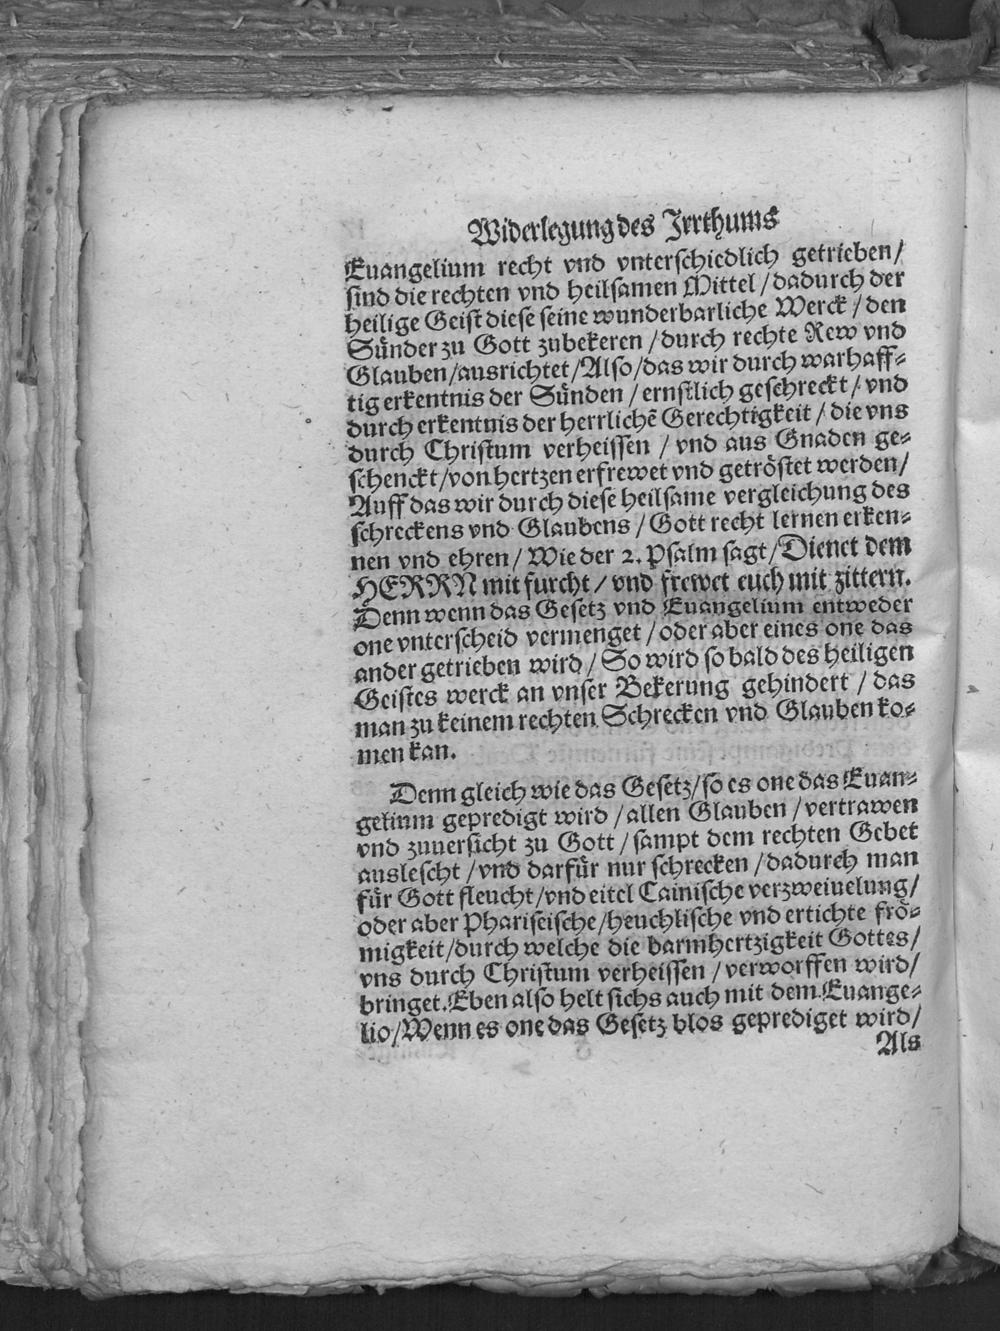 Widerlegung des Jrrthums
Euangelium recht vnd vnterschiedlich getrieben/
sind die rechten vnd heilsamen Mittel/dadurch der
heilige Geist diese seine wunderbarliche Werck/den
Sünder zu Gott zubekeren/durch rechte Rew vnd
Glauben/ausrichtet/Also/das wir durch warhaff⸗
tig erkentnis der Sünden/ernstlich geschreckt/vnd
durch erkentnis der herrlichē Gerechtigkeit/die vns
durch Christum verheissen/vnd aus Gnaden ge⸗
schenckt/von hertzen erfrewet vnd getröstet werden/
Auff das wir durch diese heilsame vergleichung des
schreckens vnd Glaubens/Gott recht lernen erken⸗
nen vnd ehren/Wie der 2. Psalm sagt/Dienet dem
HERRN mit furcht/vnd frewet euch mit zittern.
Denn wenn das Gesetz vnd Euangelium entweder
one vnterscheid vermenget/oder aber eines one das
ander getrieben wird/So wird so bald des heiligen
Geistes werck an vnser Bekerung gehindert/das
man zu keinem rechten Schrecken vnd Glauben ko⸗
men kan.
Denn gleich wie das Gesetz/so es one das Euan⸗
gelium gepredigt wird/allen Glauben/vertrawen
vnd zuuersicht zu Gott/sampt dem rechten Gebet
auslescht/vnd darfür nur schrecken/dadurch man
für Gott fleucht/vnd eitel Cainische verzweiuelung/
oder aber Phariseische/heuchlische vnd ertichte frö⸗
migkeit/durch welche die barmhertzigkeit Gottes/
vns durch Christum verheissen/verworffen wird/
bringet. Eben also helt sichs auch mit dem Euange⸗
lio/Wenn es one das Gesetz blos geprediget wird/
Als